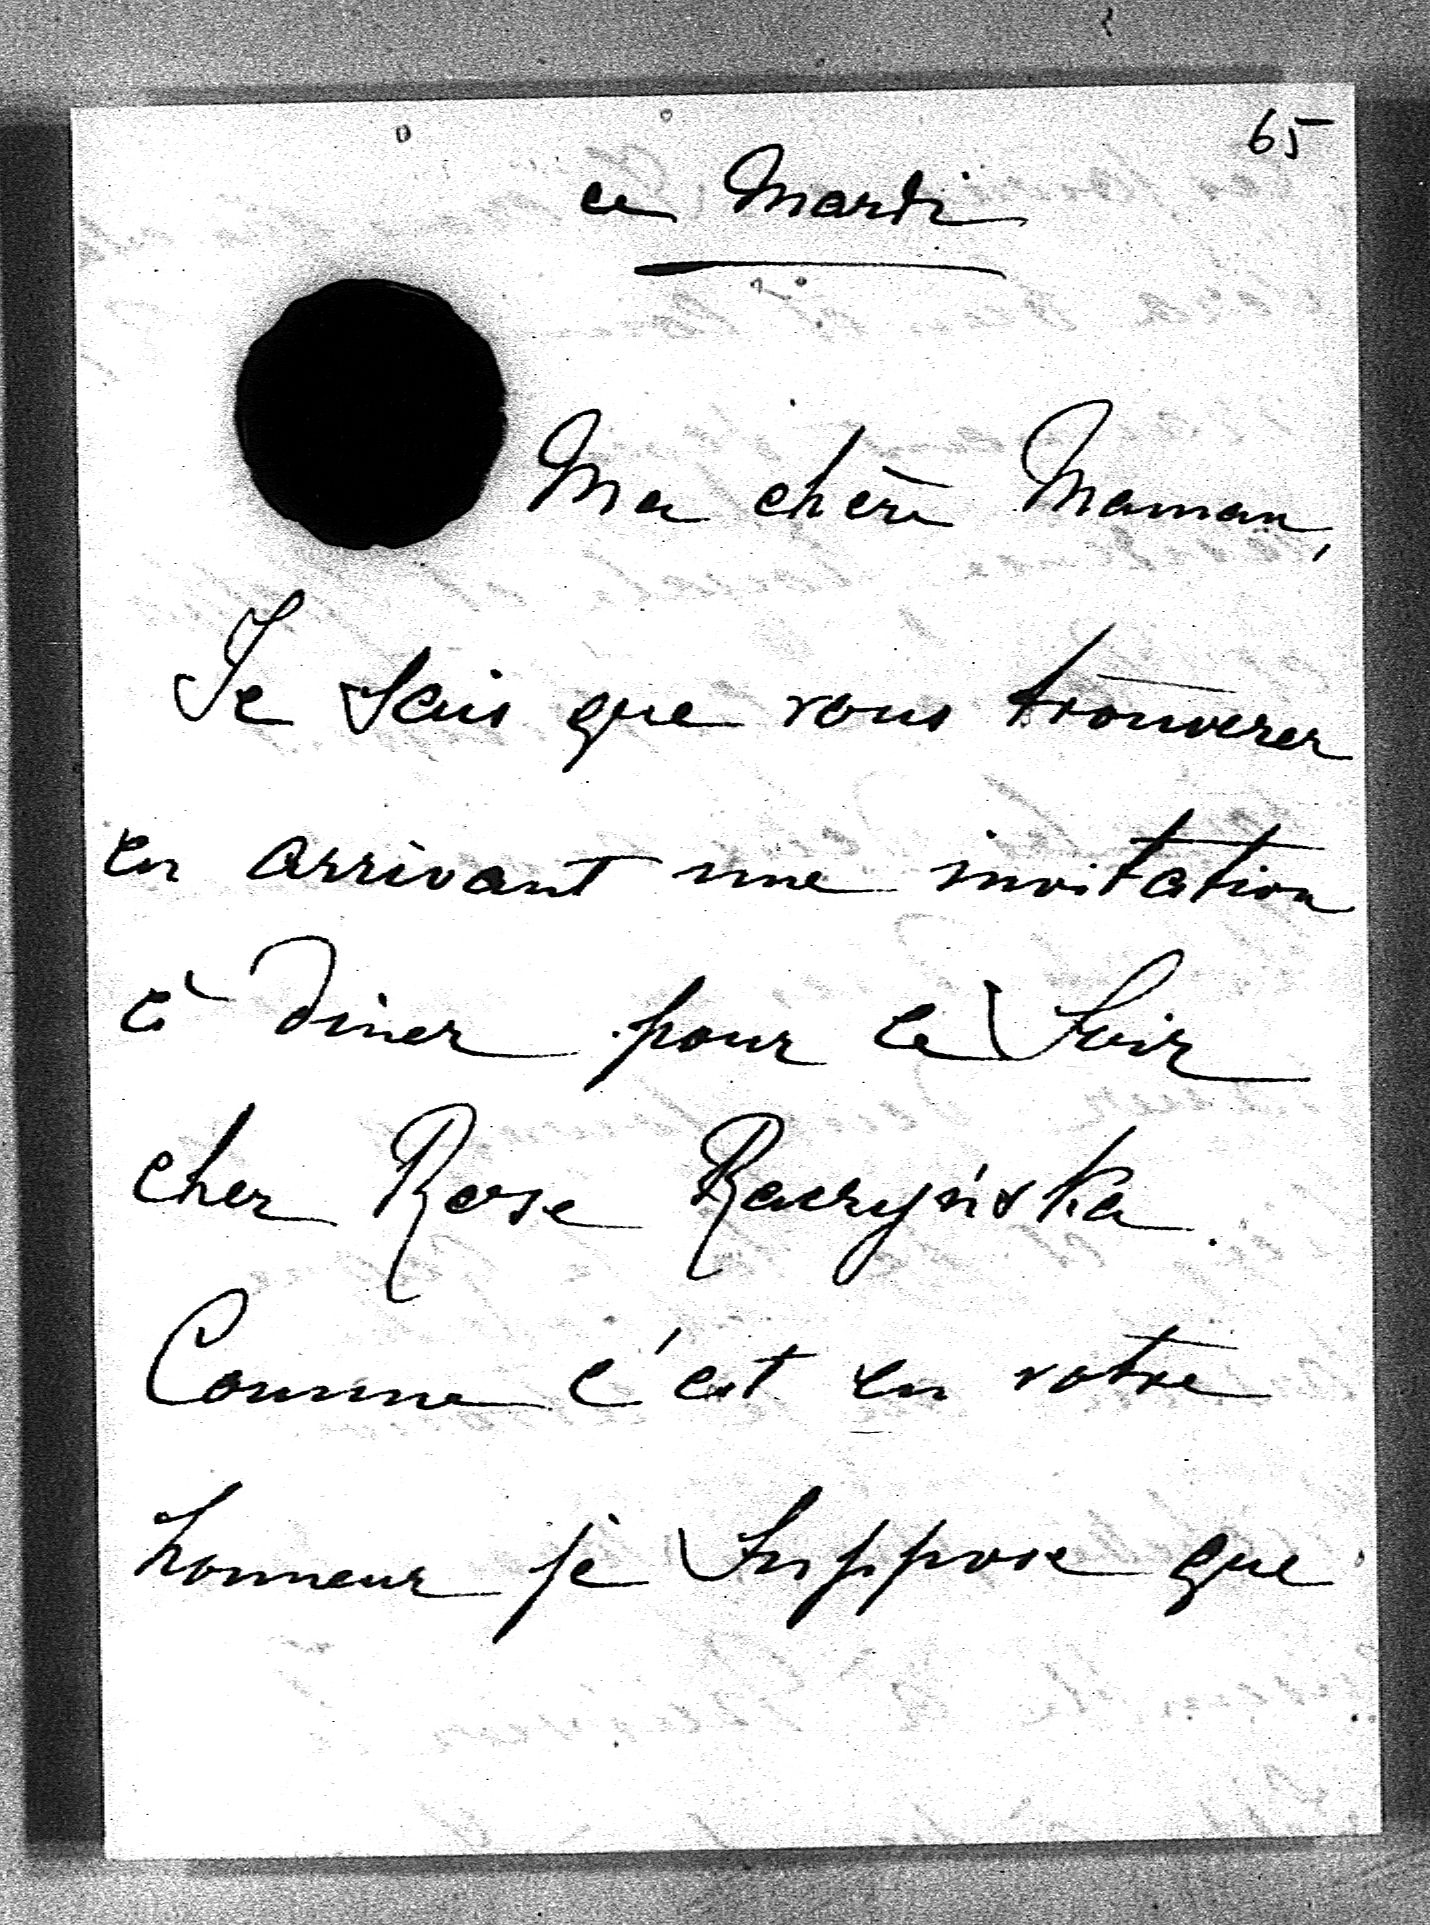 65
ce Mardi
Ma chère Maman,
Je sais que vous trouverez
en arrivant une invitation
à diner pour le soir
chez Rose Raczyńska.
Comme c'est en votre
honneur je suppose que